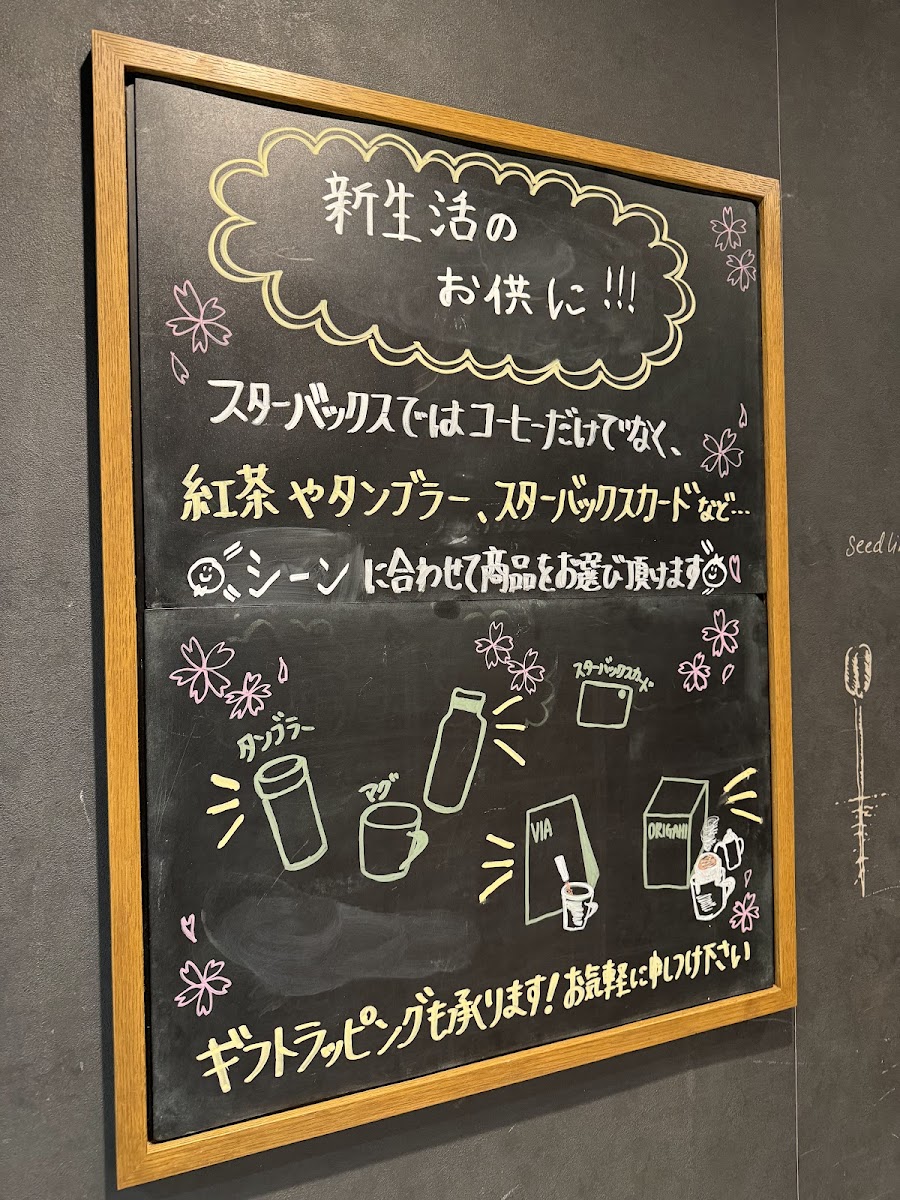 新生活の
お供に!!!
スターバックスではコーヒーだけでなく、
紅茶やタンブラー、スターバックスカードなど…
シーンに合わせて商品をお選び頂けます
スターバックスカード
タンブラー
マグ
VIA
ORIGAMI
ギフトラッピングも承ります!お気軽に申しつけ下さい